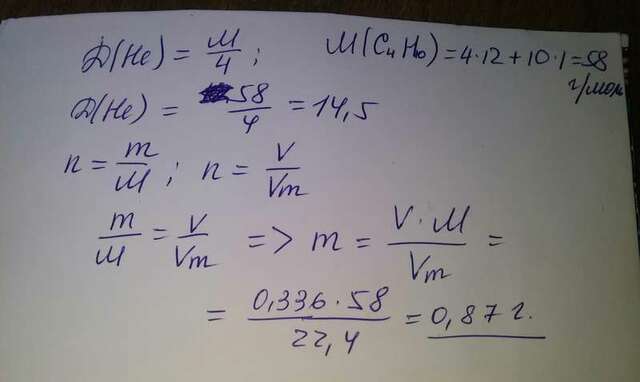 D(He) = M/4 ; M(C₄H₁₀) = 4·12 + 10·1 = 58 г/моль
D(He) = 58/4 = 14,5
n = m/M ; n = V/Vm
m/M = V/Vm => m = V·M/Vm =
= 0,336·58/22,4 = 0,87 г.